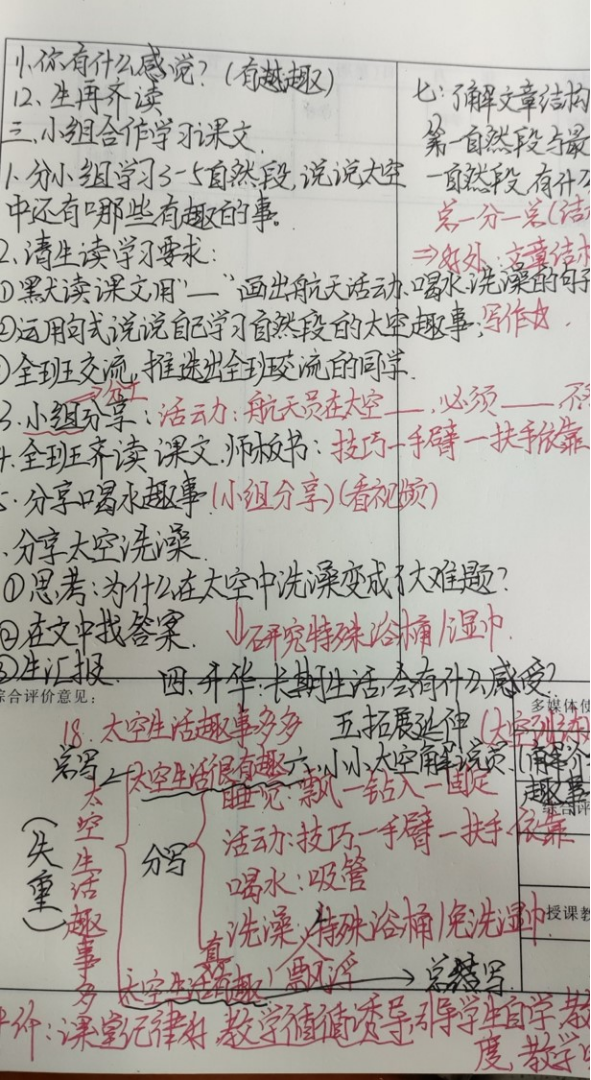 11、你有什么感觉？（有趣）
12、生再齐读
三、小组合作学习课文.
1、分小组学习3-5自然段，说说太空
中还有哪些有趣的事。
2、请生读学习要求：
①默读课文用“—”画出航天活动、喝水、洗澡的句子
②运用句式说说自己学习自然段的太空趣事；写作
③全班交流，推选出全班交流的同学.
分工
3.小组分享：活动力：航天员在太空——，必须——，不
4.全班齐读课文.师板书：技巧—手臂—扶手依靠
5、分享喝水趣事（小组分享）（看视频）
、分享太空洗澡.
①思考：为什么在太空中洗澡变成了大难题？
②在文中找答案.
↓研究特殊浴桶/湿巾.
③生汇报.
四、升华：长期生活，会有什么感受？
七：了解文章结构
第一自然段与最
一自然段，有什么
总—分—总（结
⇒好处：文章结构
综合评价意见：
多媒体使
18.太空生活趣事多多
五、拓展延伸（太空
总写
太空生活很有趣
六、小小太空解说员.（解说
趣事
综合评
睡觉：飘—钻入—固定
太空生活趣事多
（失重）
分写
活动：技巧—手臂—扶手依靠
喝水：吸管
洗澡：特殊浴桶/免洗湿巾
飘浮
授课教
太空生活真有趣！
→总结写.
评价：课堂纪律好，教学循循诱导，引导学生自学，教
度，教学